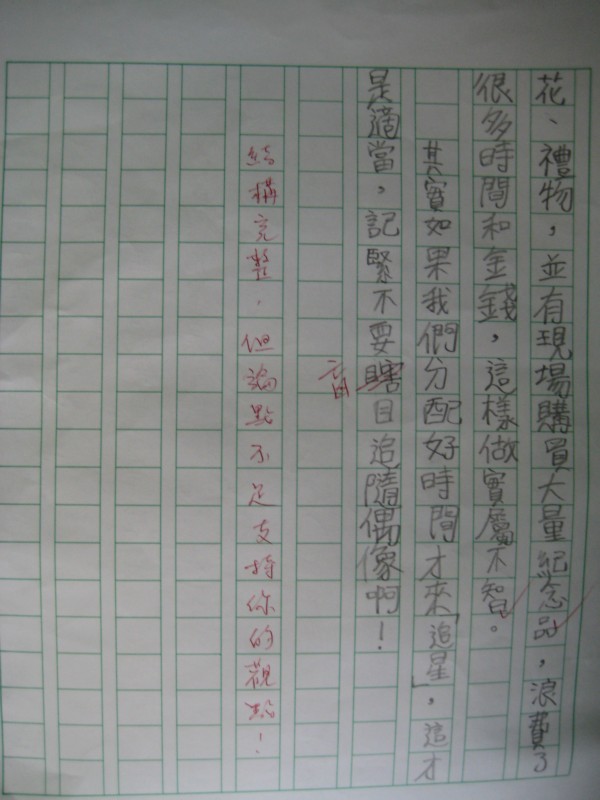 花、禮物，並有現場購買大量紀念品，浪費了
很多時間和金錢，這樣做實屬不智。
其實如果我們分配好時間才來「追星」，這才
是適當，記緊不要瞎目追隨偶像啊！
盲
結構完整，但論點不足支持你的觀點！